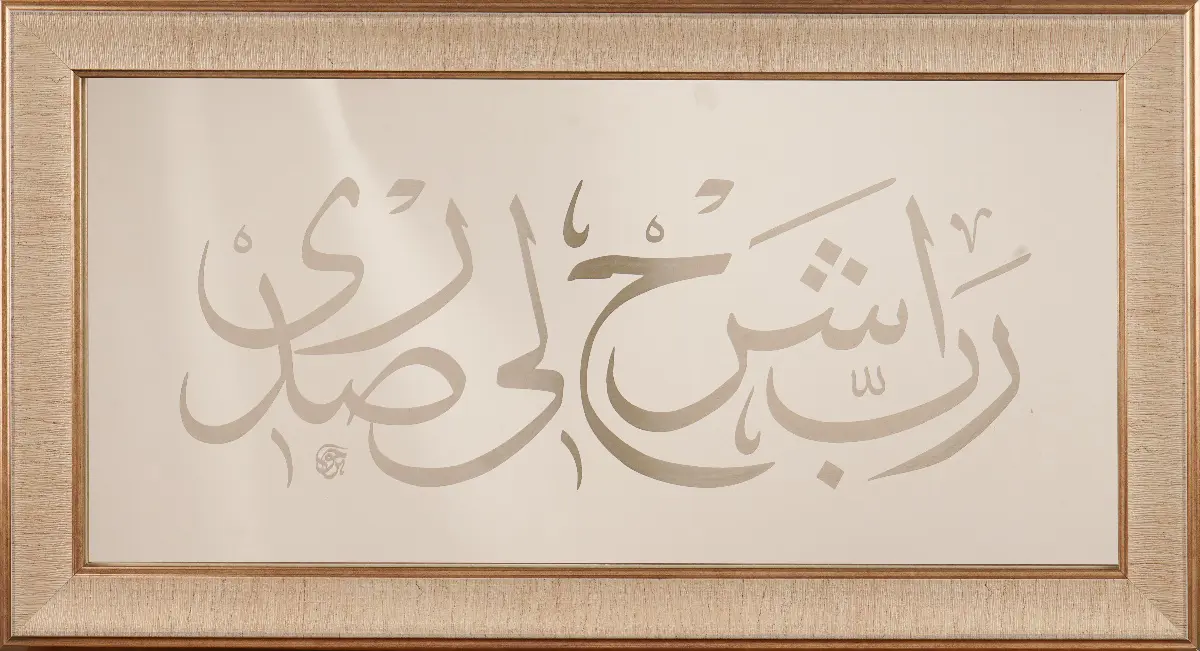 رَبِّ اشْرَحْ لِى صَدْرِى